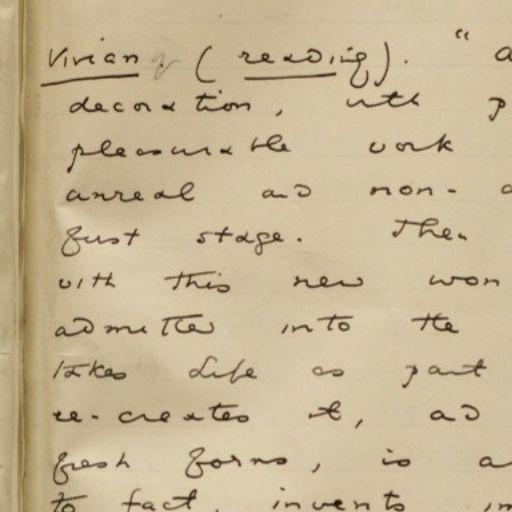 Vivian. (reading). "a
decoration, with p
pleasurable work
unreal and non-
first stage. Then
with this new won
admitted into the
takes Life as part
re-creates it, and
fresh forms, is
to fact, invents im